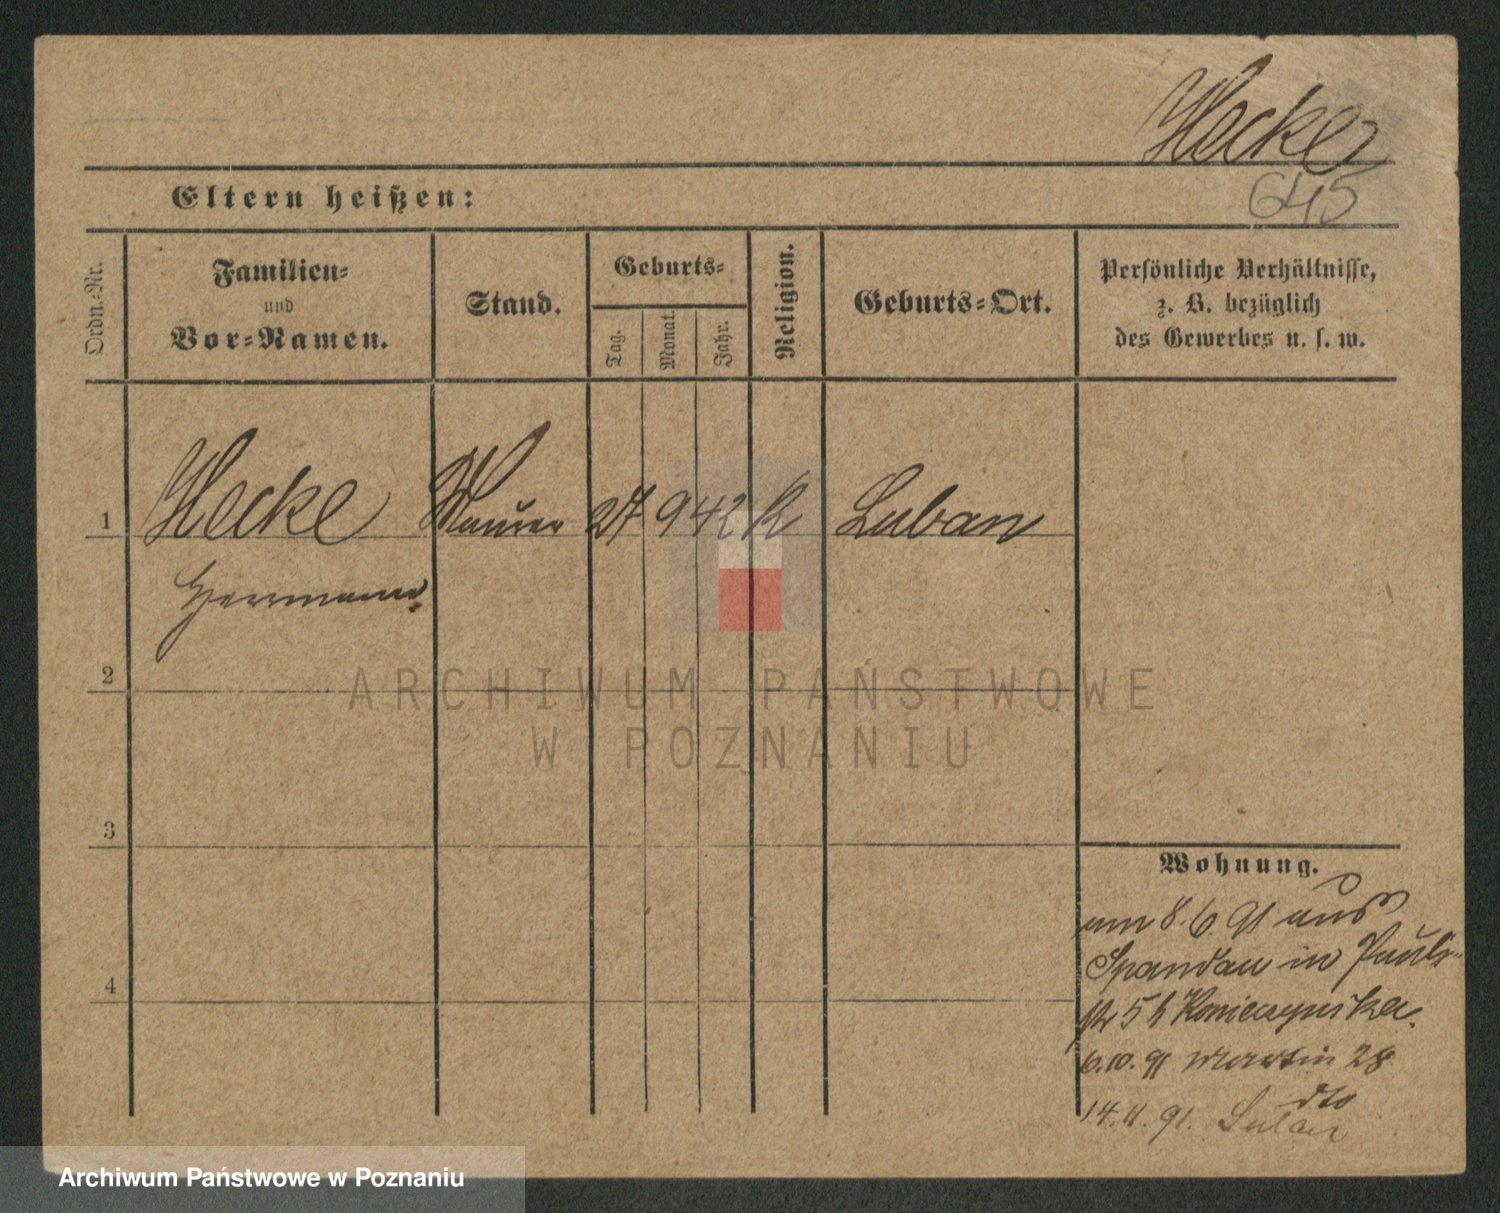 Hecke
645
Eltern heißen:
Ordn.-Nr.
Familien- und Vor-Namen.
Stand.
Geburts-
Tag.
Monat.
Jahr.
Religion.
Geburts-Ort.
Persönliche Verhältnisse,
z. B. bezüglich
des Gewerbes u. s. w.
1
Hecke Maurer 27 9 42 k Luban
Herrmann
2
ARCHIWUM PAŃSTWOWE
W POZNANIU
3
Wohnung.
am 8.6 91 aus
Spandau in Pauli
str 5 b Konieczynska.
4
6.10.91 Martin 28
dto
14.11.91. Luban
Archiwum Państwowe w Poznaniu